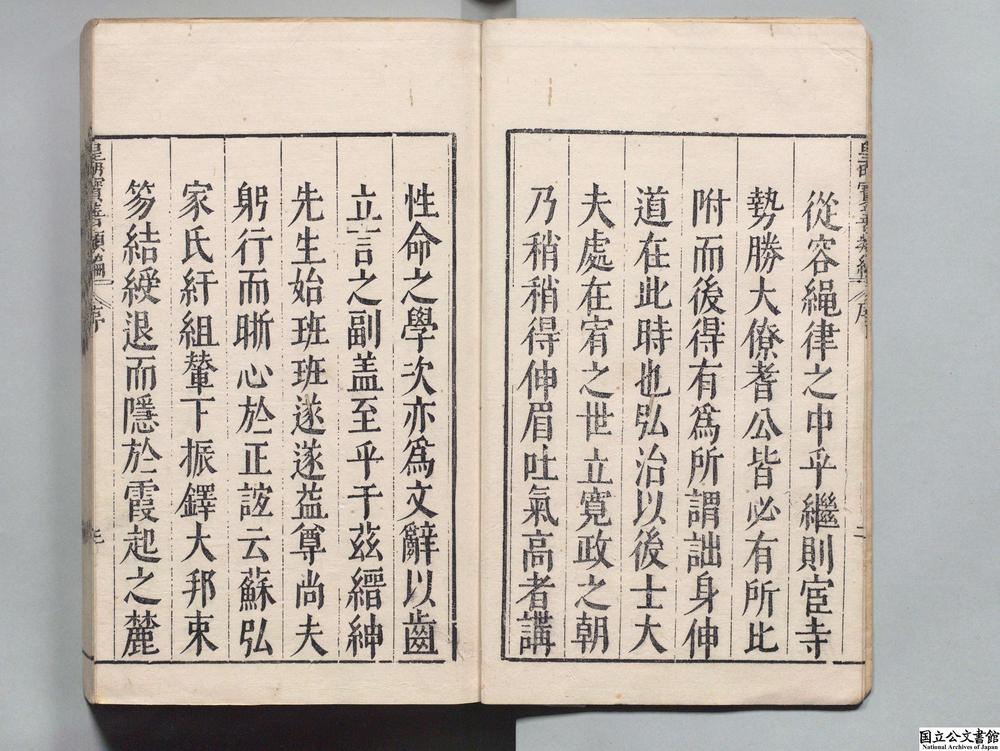 從容繩律之中乎繼則宦寺
勢勝大僚耆公皆必有所比
附而後得有爲所謂詘身伸
道在此時也弘治以後士大
夫處在宥之世立寬政之朝
乃稍稍得伸眉吐氣高者講
性命之學次亦爲文辭以齒
立言之副盖至乎于茲縉紳
先生始班班遂遂益尊尚夫
躬行而晰心於正詃云蘇弘
家氏紆組輦下振鐸大邦束
笏結綬退而隱於霞起之麓
皇明寶善類編
序
二
国立公文書館
National Archives of Japan